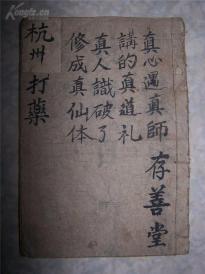 真心遇真師
講的真道礼
真人識破了
修成真仙体
存善堂
杭州打藥